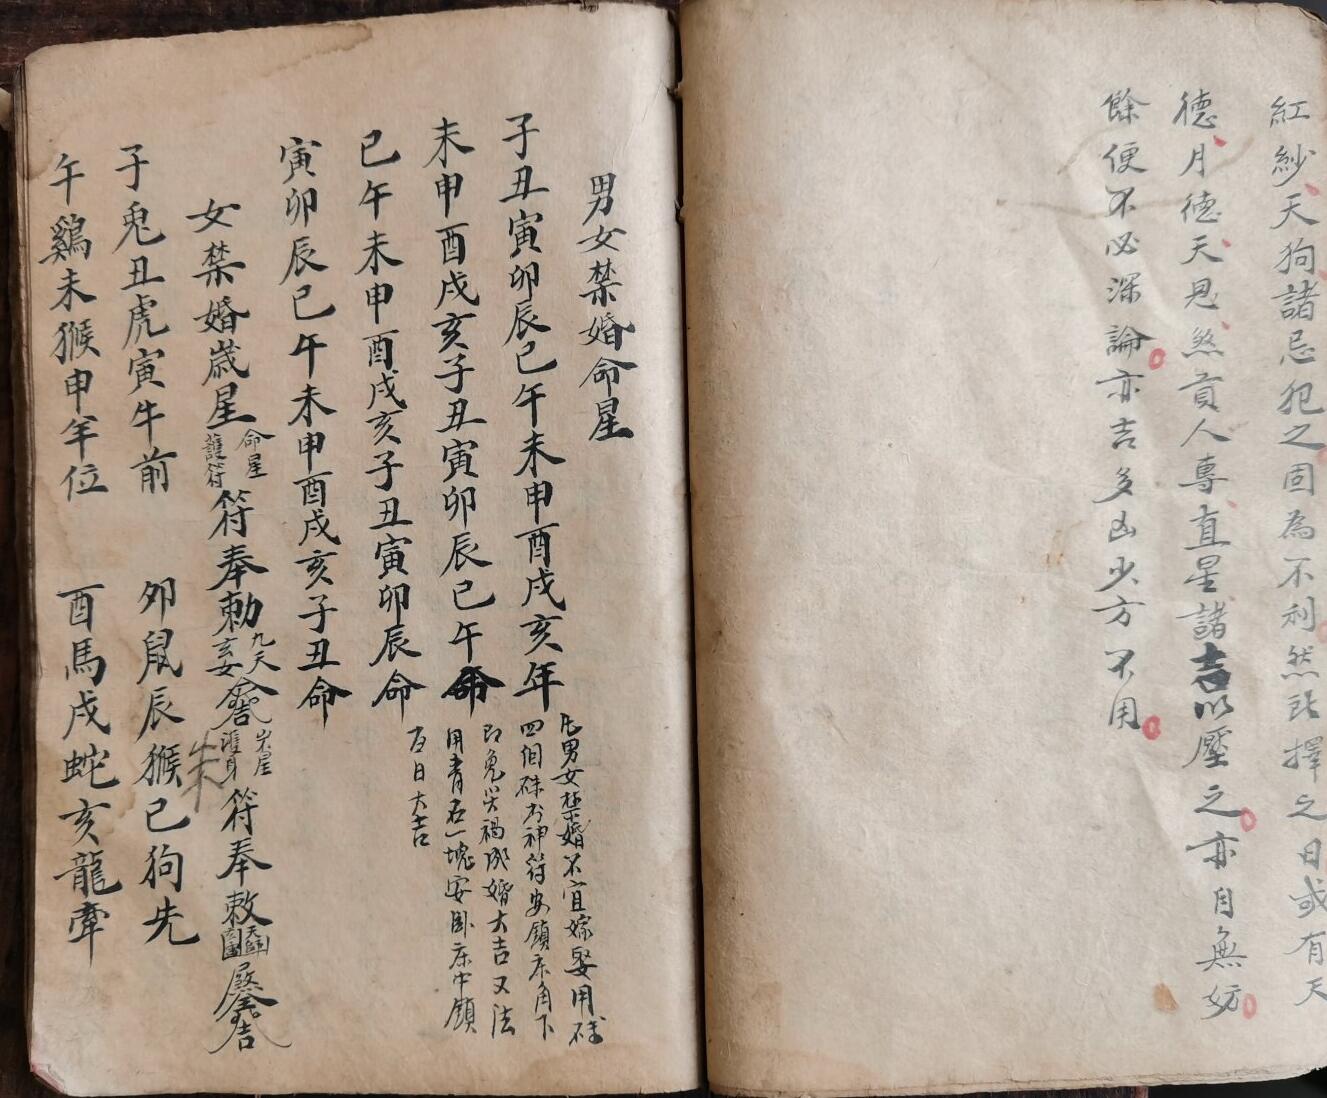 紅紗天狗諸忌犯之固為不利然既擇之日或有天
德月德天恩煞貢人專直星諸吉以壓之亦自無妨
餘便不必深論亦吉多凶少方可用
男女禁婚命星
子丑寅卯辰巳午未申酉戌亥年
未申酉戌亥子丑寅卯辰巳午命
巳午未申酉戌亥子丑寅卯辰命
寅卯辰巳午未申酉戌亥子丑命
凡男女禁婚不宜嫁娶用硃
四個硃書神符安鎮床角下
即免災禍成婚大吉又法
用青石一塊安臥床中鎮
百日大吉
女禁婚歲星
命星
護符
符奉勅
九天
玄女
護身
符奉敕
子兔丑虎寅牛前 卯鼠辰猴巳狗先
午鷄未猴申羊位 酉馬戌蛇亥龍牽
朱